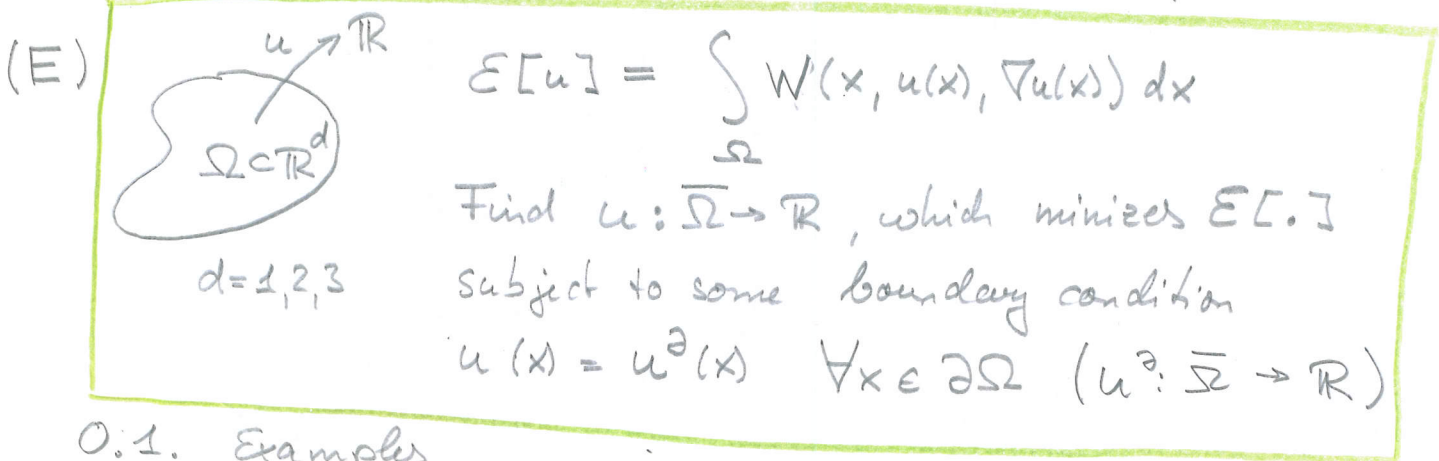 (E)
u ℝ
Ω ⊂ ℝᵈ
d=1,2,3
ℰ[u] = ∫_Ω W(x, u(x), ∇u(x)) dx
Find u : Ω̅ → ℝ, which minizes ℰ[.]
subject to some boundary condition
u(x) = u^∂(x) ∀x ∈ ∂Ω (u^∂: Ω̅ → ℝ)
0.1. Examples